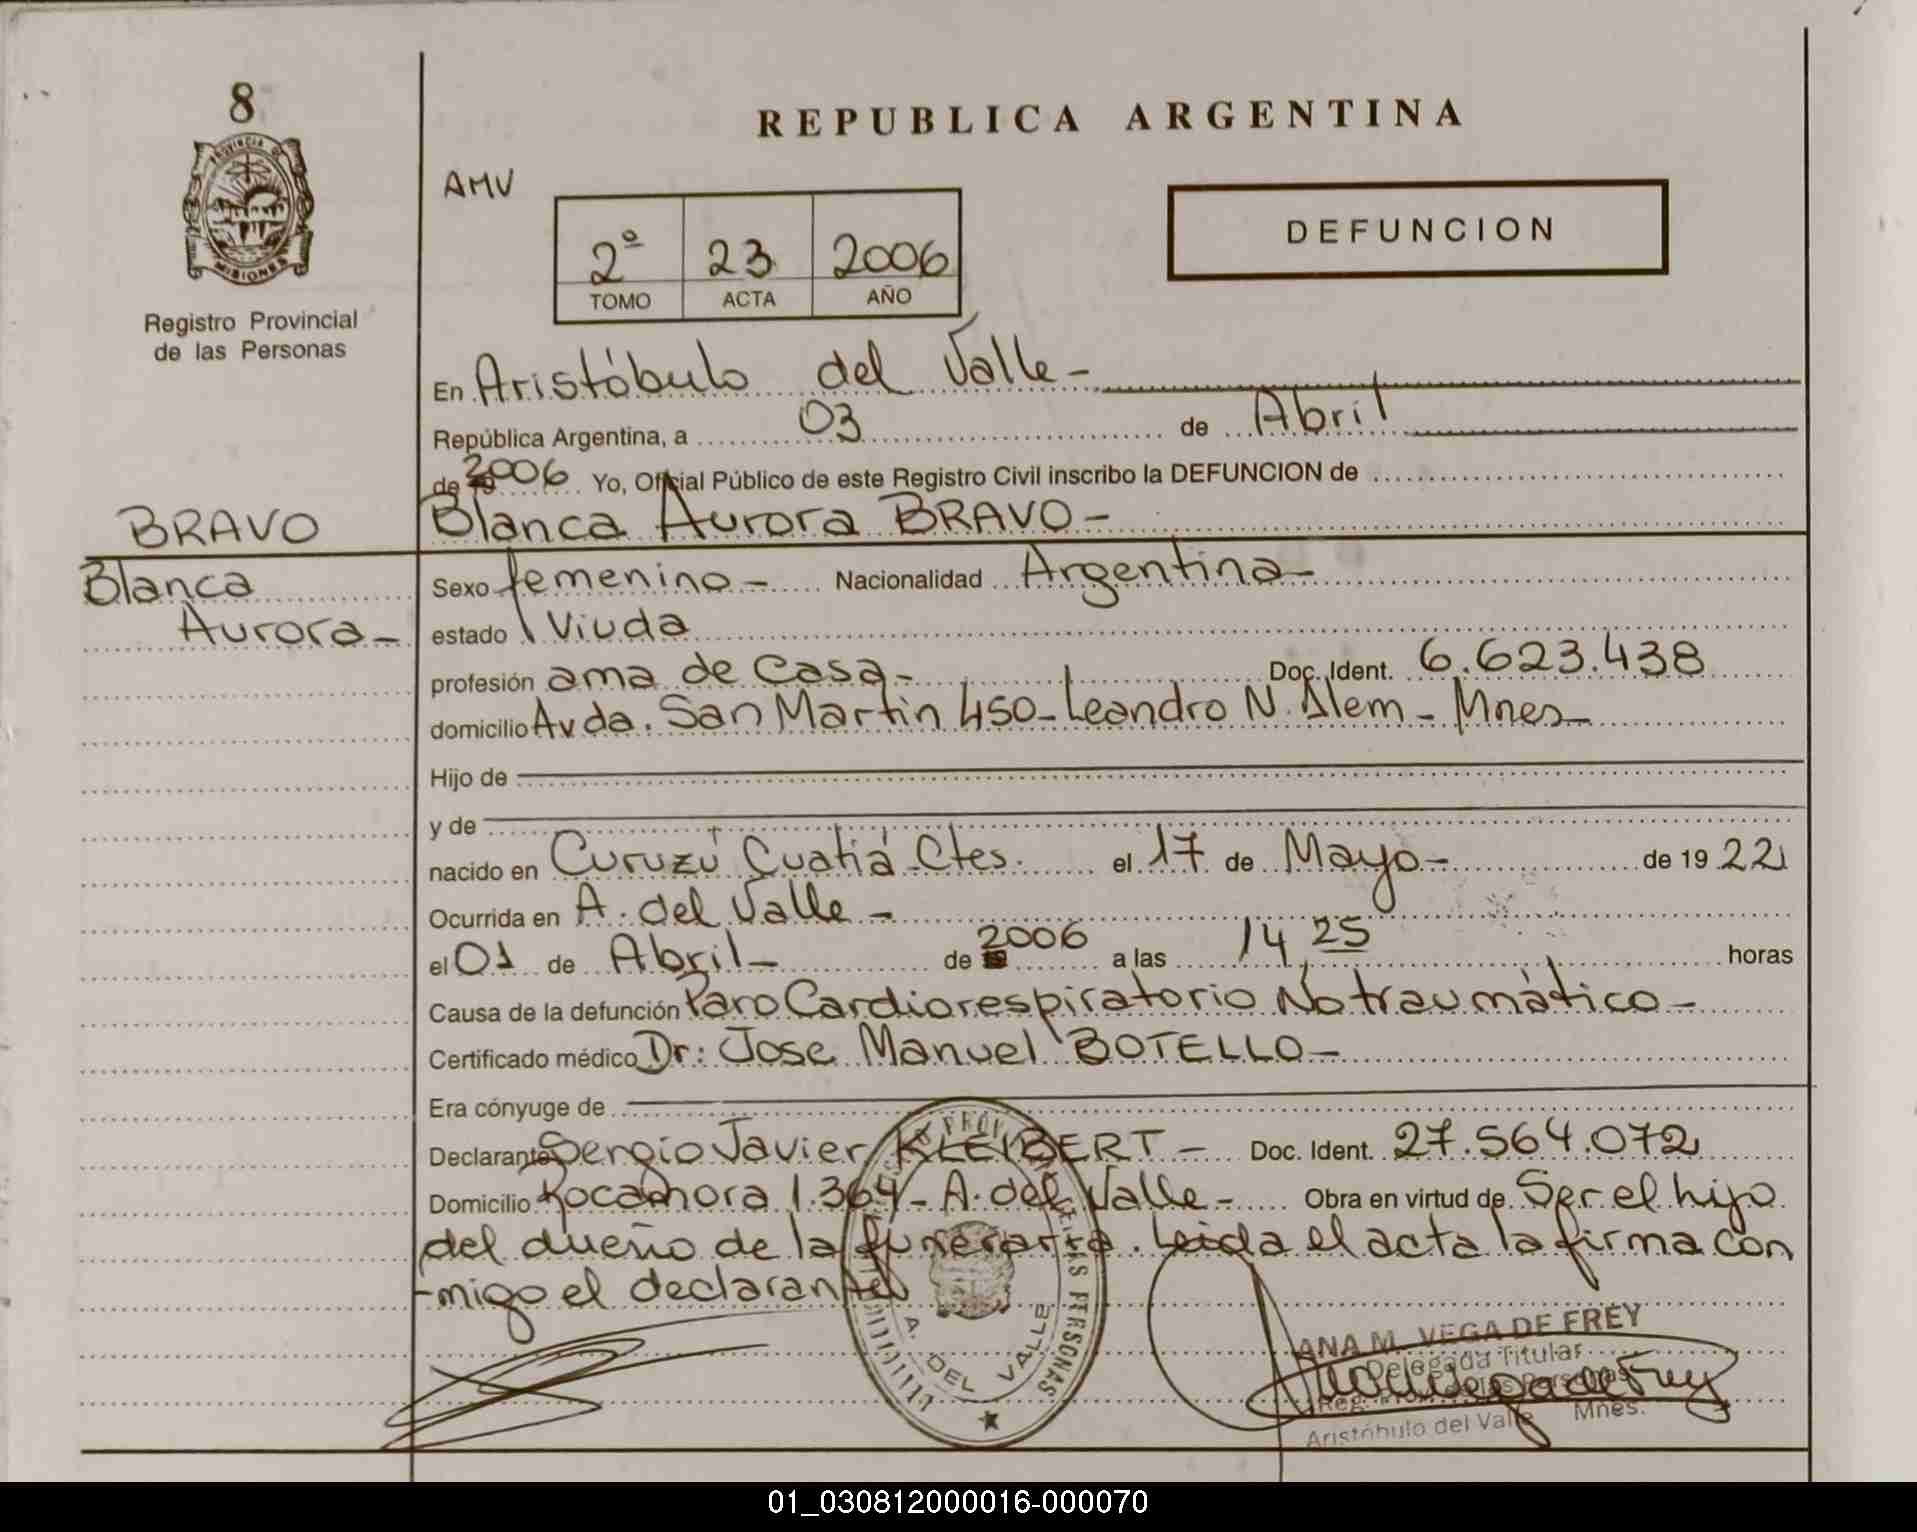 8
PROVINCIA DE
MISIONES
Registro Provincial
de las Personas
REPUBLICA ARGENTINA
AMV
2º 23 2006
TOMO ACTA AÑO
DEFUNCION
En Aristóbulo del Valle -
República Argentina, a 03 de Abril
de 2006 Yo, Oficial Público de este Registro Civil inscribo la DEFUNCION de
BRAVO
Blanca Aurora BRAVO -
Blanca
Aurora -
Sexo femenino - Nacionalidad Argentina -
estado Viuda
profesión ama de Casa - Doc. Ident. 6.623.438
domicilio Avda. San Martin 450 - Leandro N. Alem - Mnes -
Hijo de
y de
nacido en Curuzú Cuatiá - Ctes. el 17 de Mayo - de 19 22
Ocurrida en A. del Valle -
el 01 de Abril - de 2006 a las 14,25 horas
Causa de la defunción Paro Cardiorespiratorio No traumático -
Certificado médico Dr: Jose Manuel BOTELLO -
Era cónyuge de
Declarante Sergio Javier KLEIBERT - Doc. Ident. 27.564.072
Domicilio Rocamora 1.364 - A. del Valle - Obra en virtud de Ser el hijo
del dueño de la funeraria. Leida el acta la firma con
-migo el declarante
A. DEL VALLE
LAS PERSONAS
ANA M. VEGA DE FREY
Delegada Titular
Aristóbulo del Valle Mnes.
01_030812000016-000070